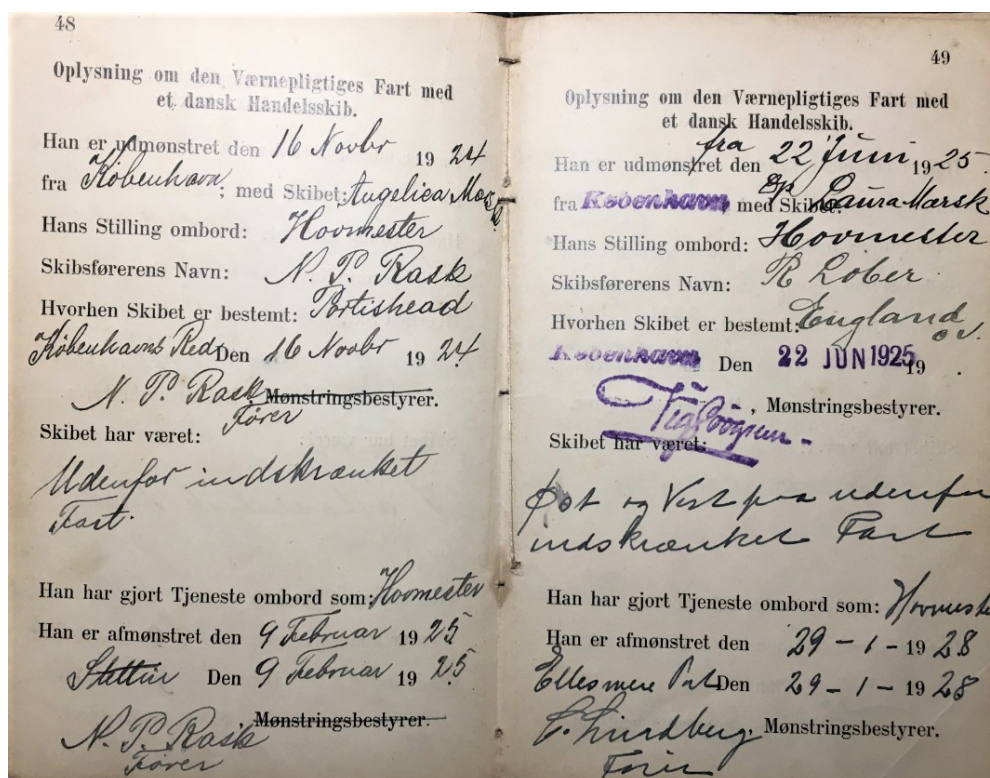 48
Oplysning om den Værnepligtiges Fart med
et dansk Handelsskib.
Han er udmønstret den 16 Novbr 1924
fra København; med Skibet: Angelica Mærsk
Hans Stilling ombord: Hovmester
Skibsførerens Navn: N. P. Rask
Hvorhen Skibet er bestemt: Portishead
Københavns Red Den 16 Novbr 1924
N. P. Rask Mønstringsbestyrer.
Fører
Skibet har været:
Udenfor indskrænket
Fart.
Han har gjort Tjeneste ombord som: Hovmester
Han er afmønstret den 9 Februar 1925
Stettin Den 9 Februar 1925
Mønstringsbestyrer.
N. P. Rask
Fører
49
Oplysning om den Værnepligtiges Fart med
et dansk Handelsskib.
fra
Han er udmønstret den 22 Juni 1925
fra København, med Skibet: Laura Mærsk
Hans Stilling ombord: Hovmester
Skibsførerens Navn: R Löber
Hvorhen Skibet er bestemt: England
København Den 22 JUN 1925 19
, Mønstringsbestyrer.
Skibet har været:
Øst og Vest paa udenfor
indskrænket Fart
Han har gjort Tjeneste ombord som: Hovmester
Han er afmønstret den 29-1-1928
Ellesmere Port Den 29-1-1928
C. Lindberg, Mønstringsbestyrer.
Fører